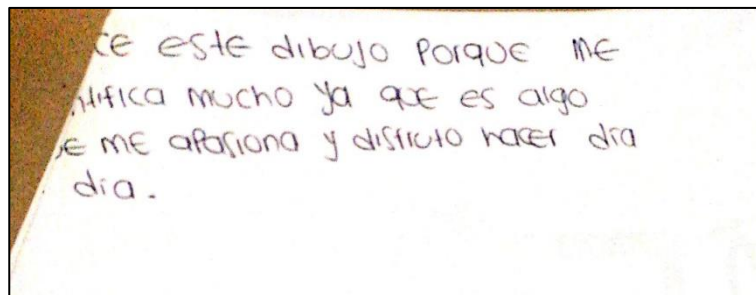 este dibujo porque me
mucho ya que es algo
me apasiona y disfruto hacer dia
dia.